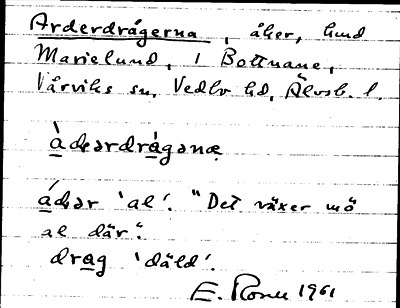 Arderdrågerna, åker, hund
Marielund, i Bottnane,
Vårviks sn, Vedbo hd, Älvsb. l.
àdərdrágənæ
ádər 'al'. "Det växer mö
al där".
drag 'däld'.
E. Rosell 1961